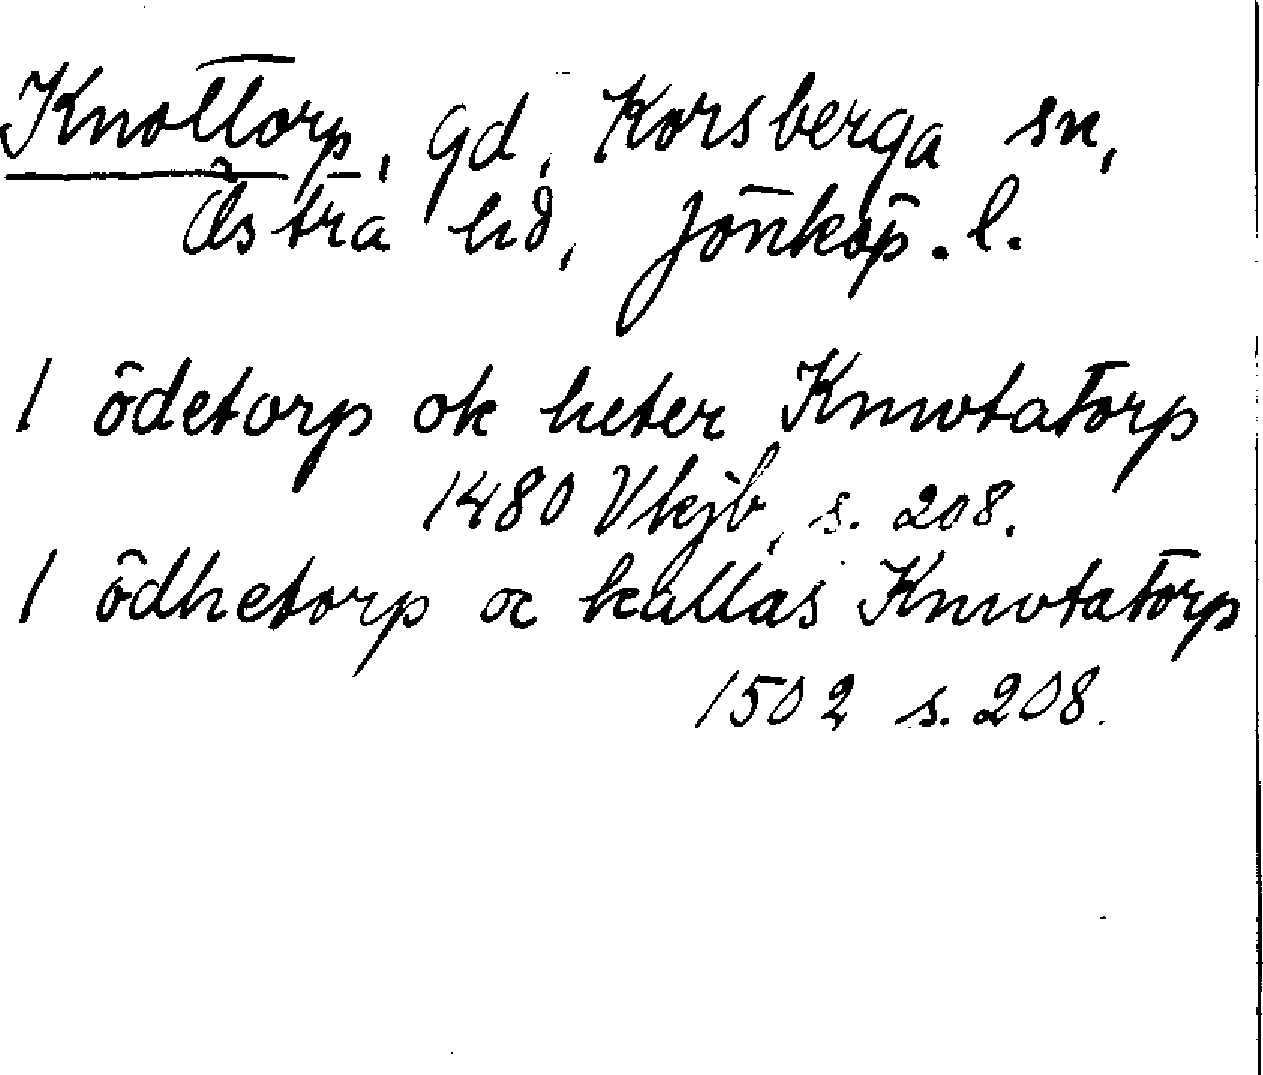 Knottorp, gd, Korsberga sn,
Östra hd, Jönköp. l.
1 ödetorp ok heter Knwtatorp
1480 Vkjb, s. 208.
1 ödhetorp oc kallas Knwtatorp
1502 s. 208.